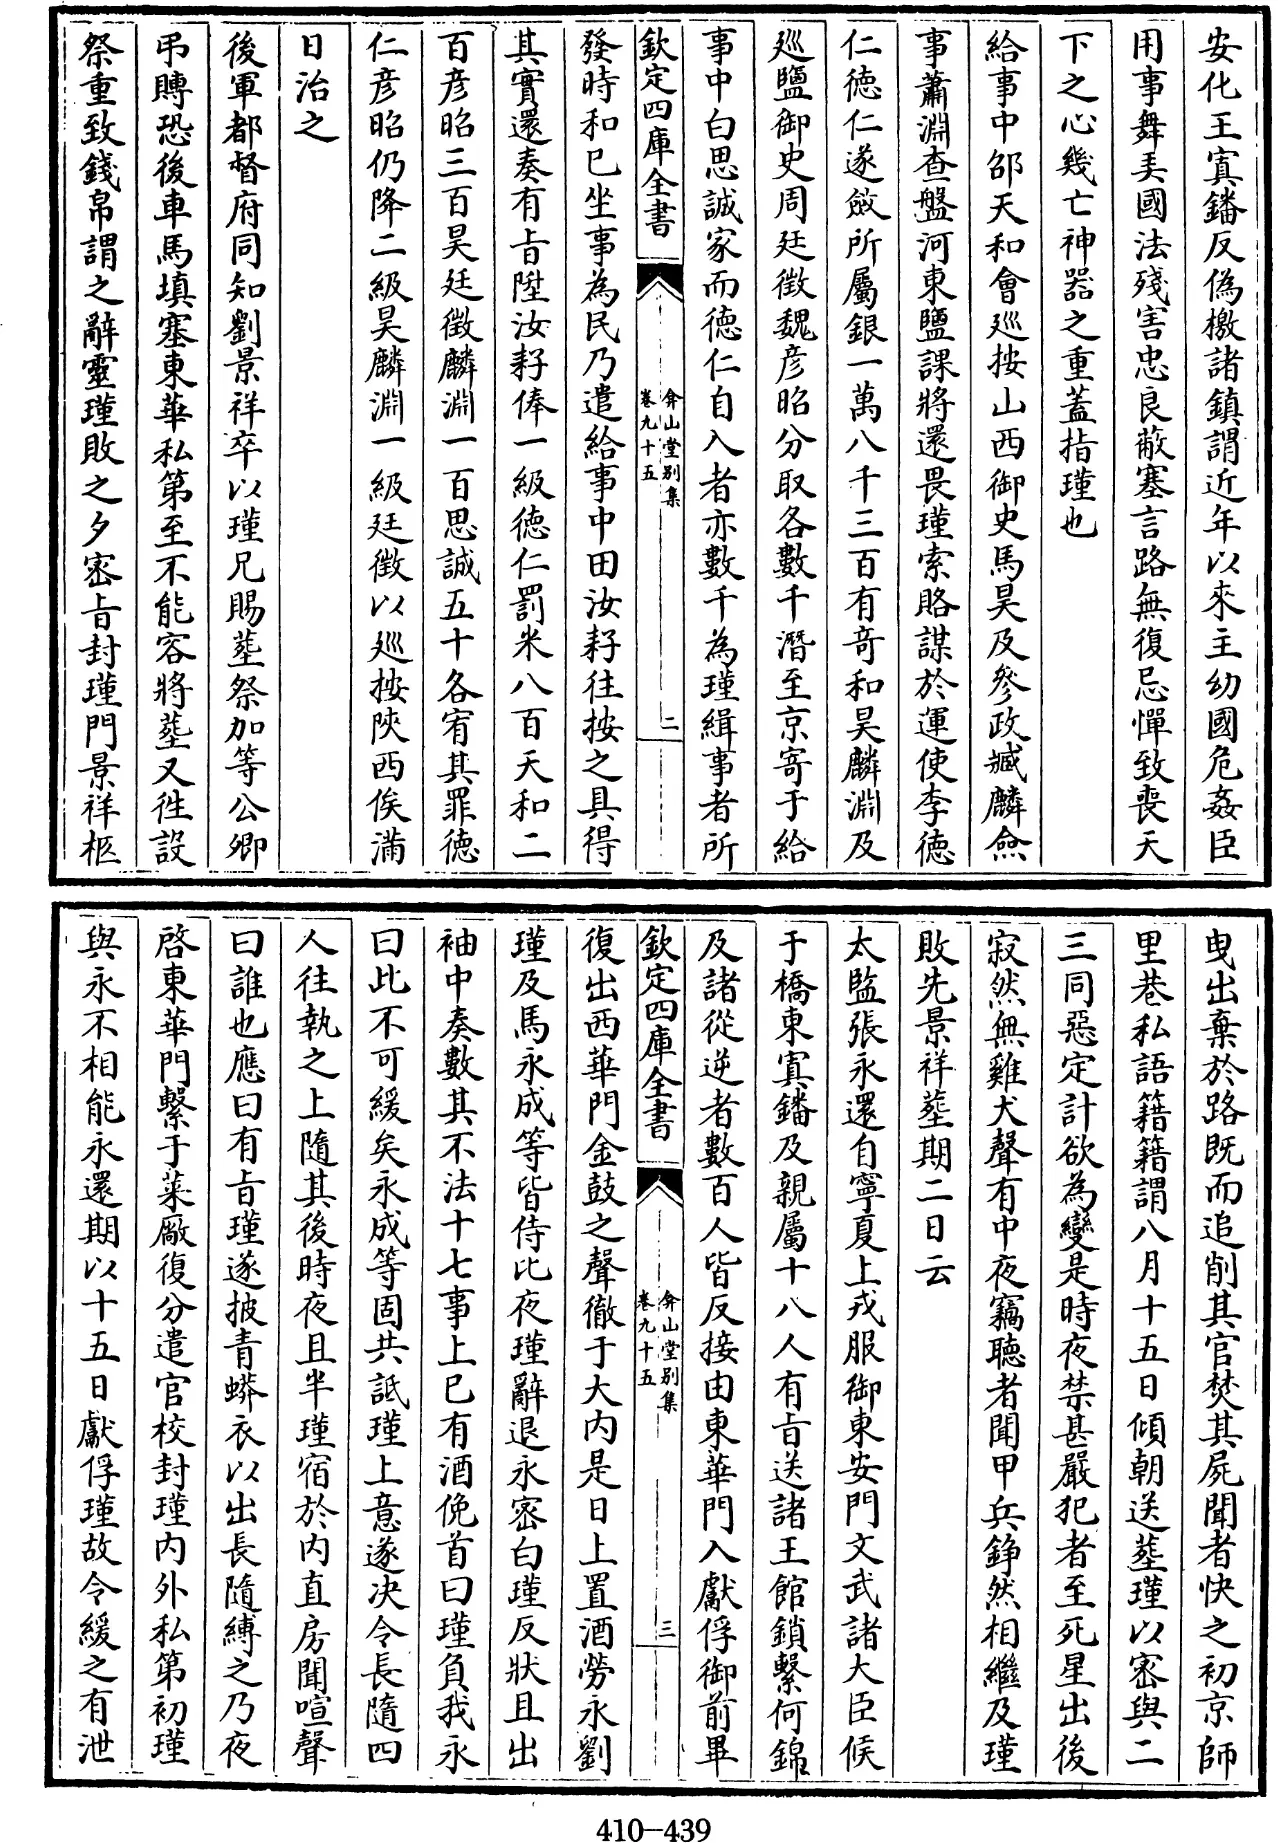 安化王寘鐇反偽檄諸鎮謂近年以來主幼國危姦臣
用事舞弄國法殘害忠良蔽塞言路無復忌憚致喪天
下之心幾亡神器之重蓋指瑾也
給事中邵天和會廵按山西御史馬昊及參政臧麟僉
事蕭淵查盤河東鹽課將還畏瑾索賂謀於運使李德
仁德仁遂斂所屬銀一萬八千三百有竒和昊麟淵及
廵鹽御史周廷徵魏彦昭分取各數千潛至京寄于給
事中白思誠家而德仁自入者亦數千為瑾緝事者所
欽定四庫全書
弇山堂别集
卷九十五
二
發時和已坐事為民乃遣給事中田汝耔往按之具得
其實還奏有㫖陞汝耔俸一級德仁罰米八百天和二
百彦昭三百昊廷徵麟淵一百思誠五十各宥其罪德
仁彦昭仍降二級昊麟淵一級廷徵以廵按陜西俟滿
日治之
後軍都督府同知劉景祥卒以瑾兄賜塟祭加等公卿
弔賻恐後車馬填塞東華私第至不能容將塟又徃設
祭重致錢帛謂之辭靈瑾敗之夕宻㫖封瑾門景祥柩
曳出棄於路既而追削其官焚其屍聞者快之初京師
里巷私語籍籍謂八月十五日傾朝送塟瑾以宻與二
三同惡定計欲為變是時夜禁甚嚴犯者至死星出後
寂然無雞犬聲有中夜竊聽者聞甲兵錚然相繼及瑾
敗先景祥塟期二日云
太監張永還自寧夏上戎服御東安門文武諸大臣候
于橋東寘鐇及親屬十八人有㫖送諸王館鎖繫何錦
及諸從逆者數百人皆反接由東華門入獻俘御前畢
欽定四庫全書
弇山堂别集
卷九十五
三
復出西華門金鼓之聲徹于大内是日上置酒勞永劉
瑾及馬永成等皆侍比夜瑾辭退永宻白瑾反狀且出
袖中奏數其不法十七事上已有酒俛首曰瑾負我永
曰此不可緩矣永成等固共詆瑾上意遂决令長隨四
人往執之上隨其後時夜且半瑾宿於内直房聞喧聲
曰誰也應曰有㫖瑾遂披青蟒衣以出長隨縛之乃夜
啓東華門繫于菜厰復分遣官校封瑾内外私第初瑾
與永不相能永還期以十五日獻俘瑾故令緩之有泄
410—439